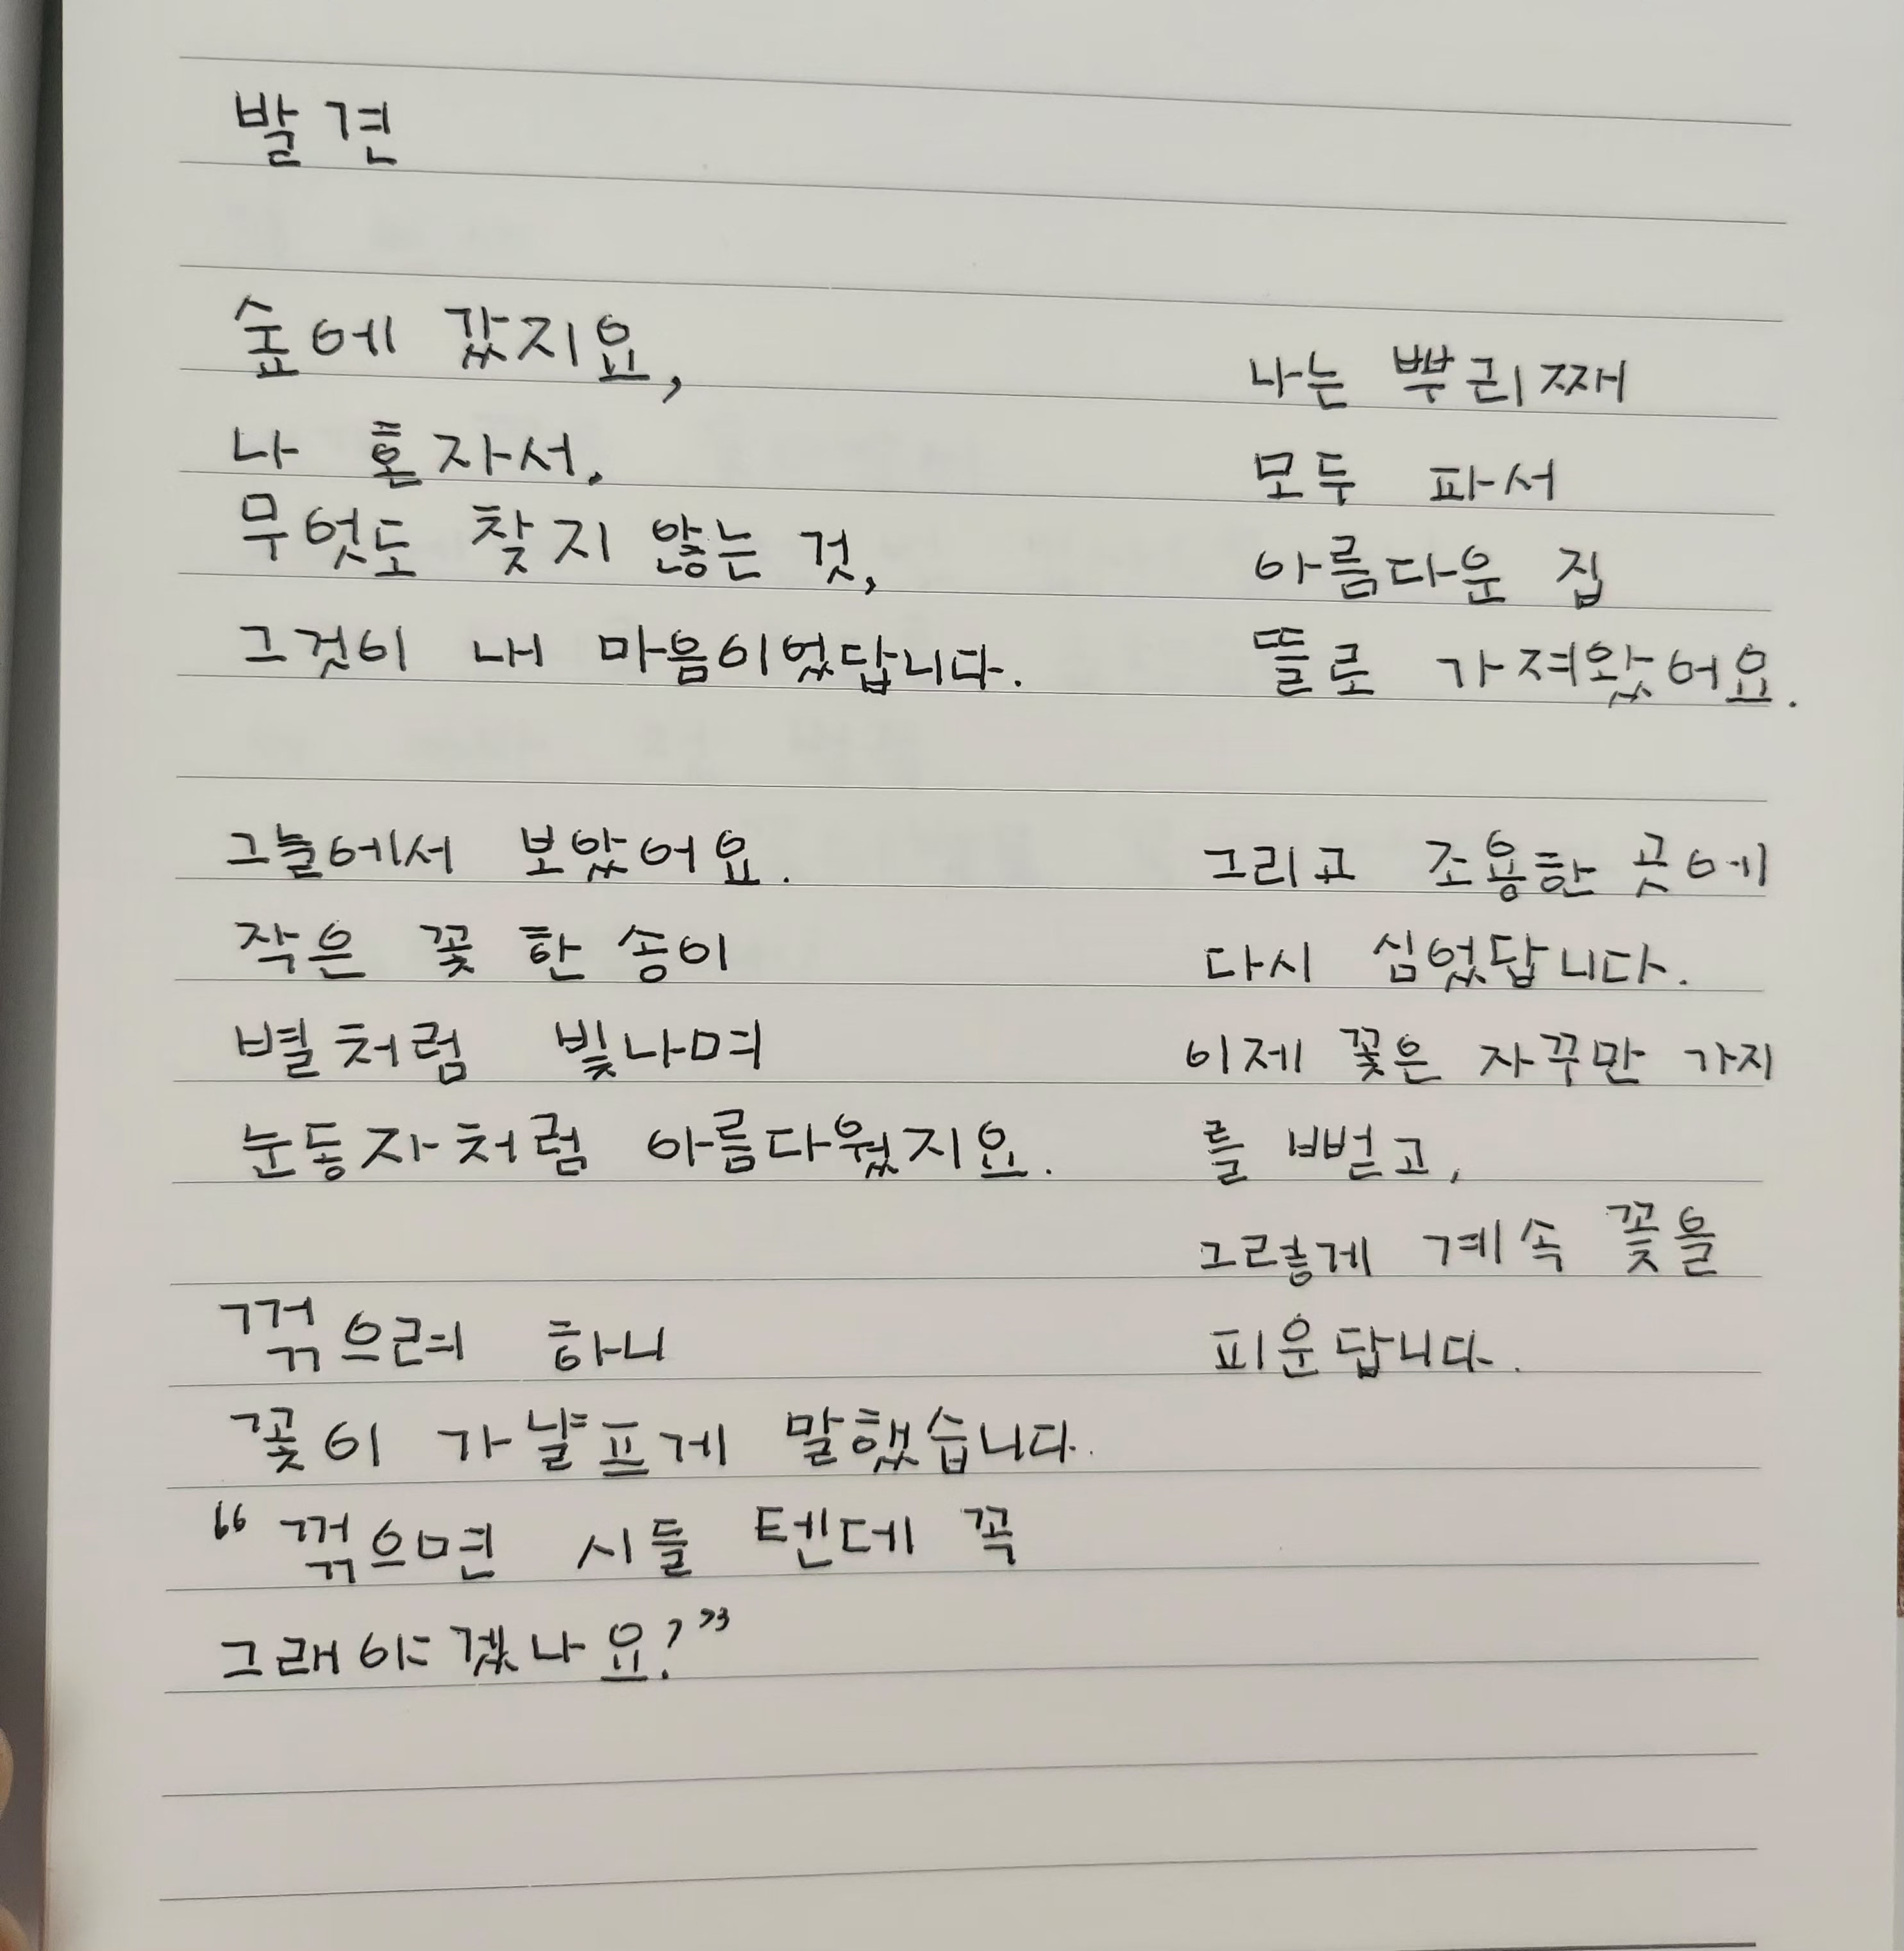 발견
숲에 갔지요,
나 혼자서.
무엇도 찾지 않는 것,
그것이 내 마음이었답니다.
그늘에서 보았어요.
작은 꽃 한 송이
별처럼 빛나며
눈동자처럼 아름다웠지요.
꺾으려 하니
꽃이 가냘프게 말했습니다.
“꺾으면 시들 텐데 꼭
그래야겠나요?”
나는 뿌리째
모두 파서
아름다운 집
뜰로 가져왔어요.
그리고 조용한 곳에
다시 심었답니다.
이제 꽃은 자꾸만 가지
를 뻗고,
그렇게 계속 꽃을
피운답니다.